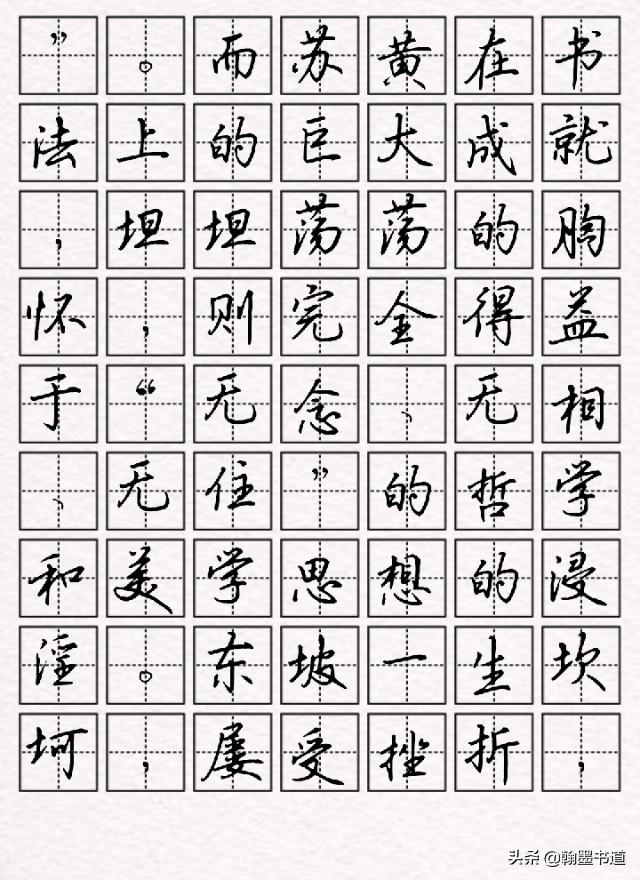 ”。而苏黄在书
法上的巨大成就
，坦坦荡荡的胸
怀，则完全得益
于“无念、无相
、无住”的哲学
和美学思想的浸
淫。东坡一生坎
坷，屡受挫折，
头条 @翰墨书道